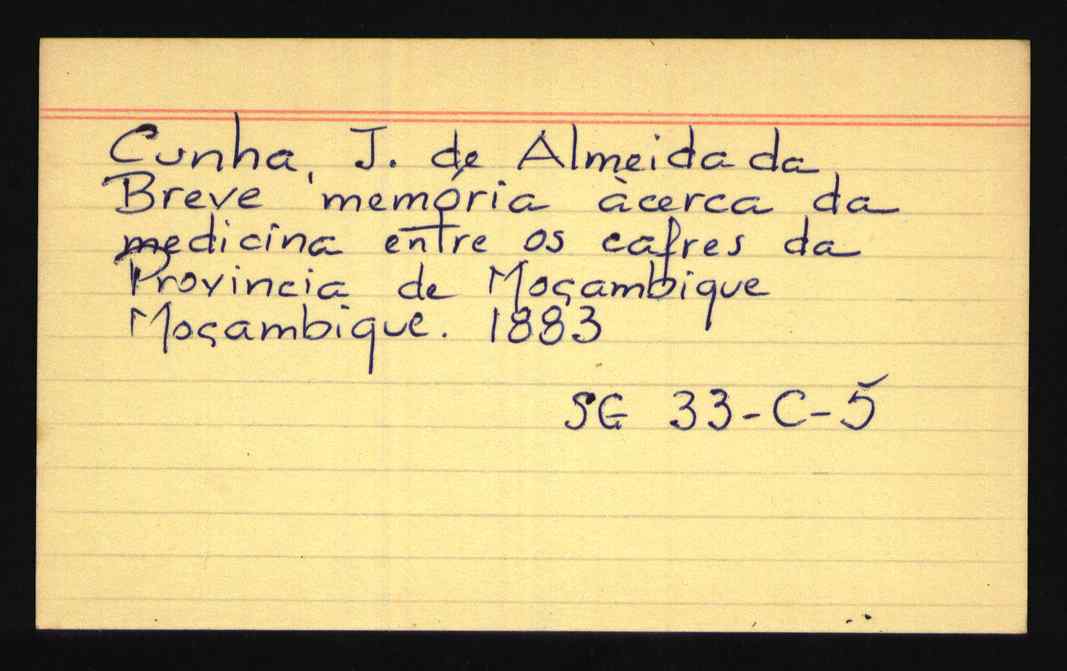 Cunha, J. de Almeida da
Breve memória àcerca da
medicina entre os cafres da
Provincia de Moçambique
Moçambique. 1883
SG 33-C-5